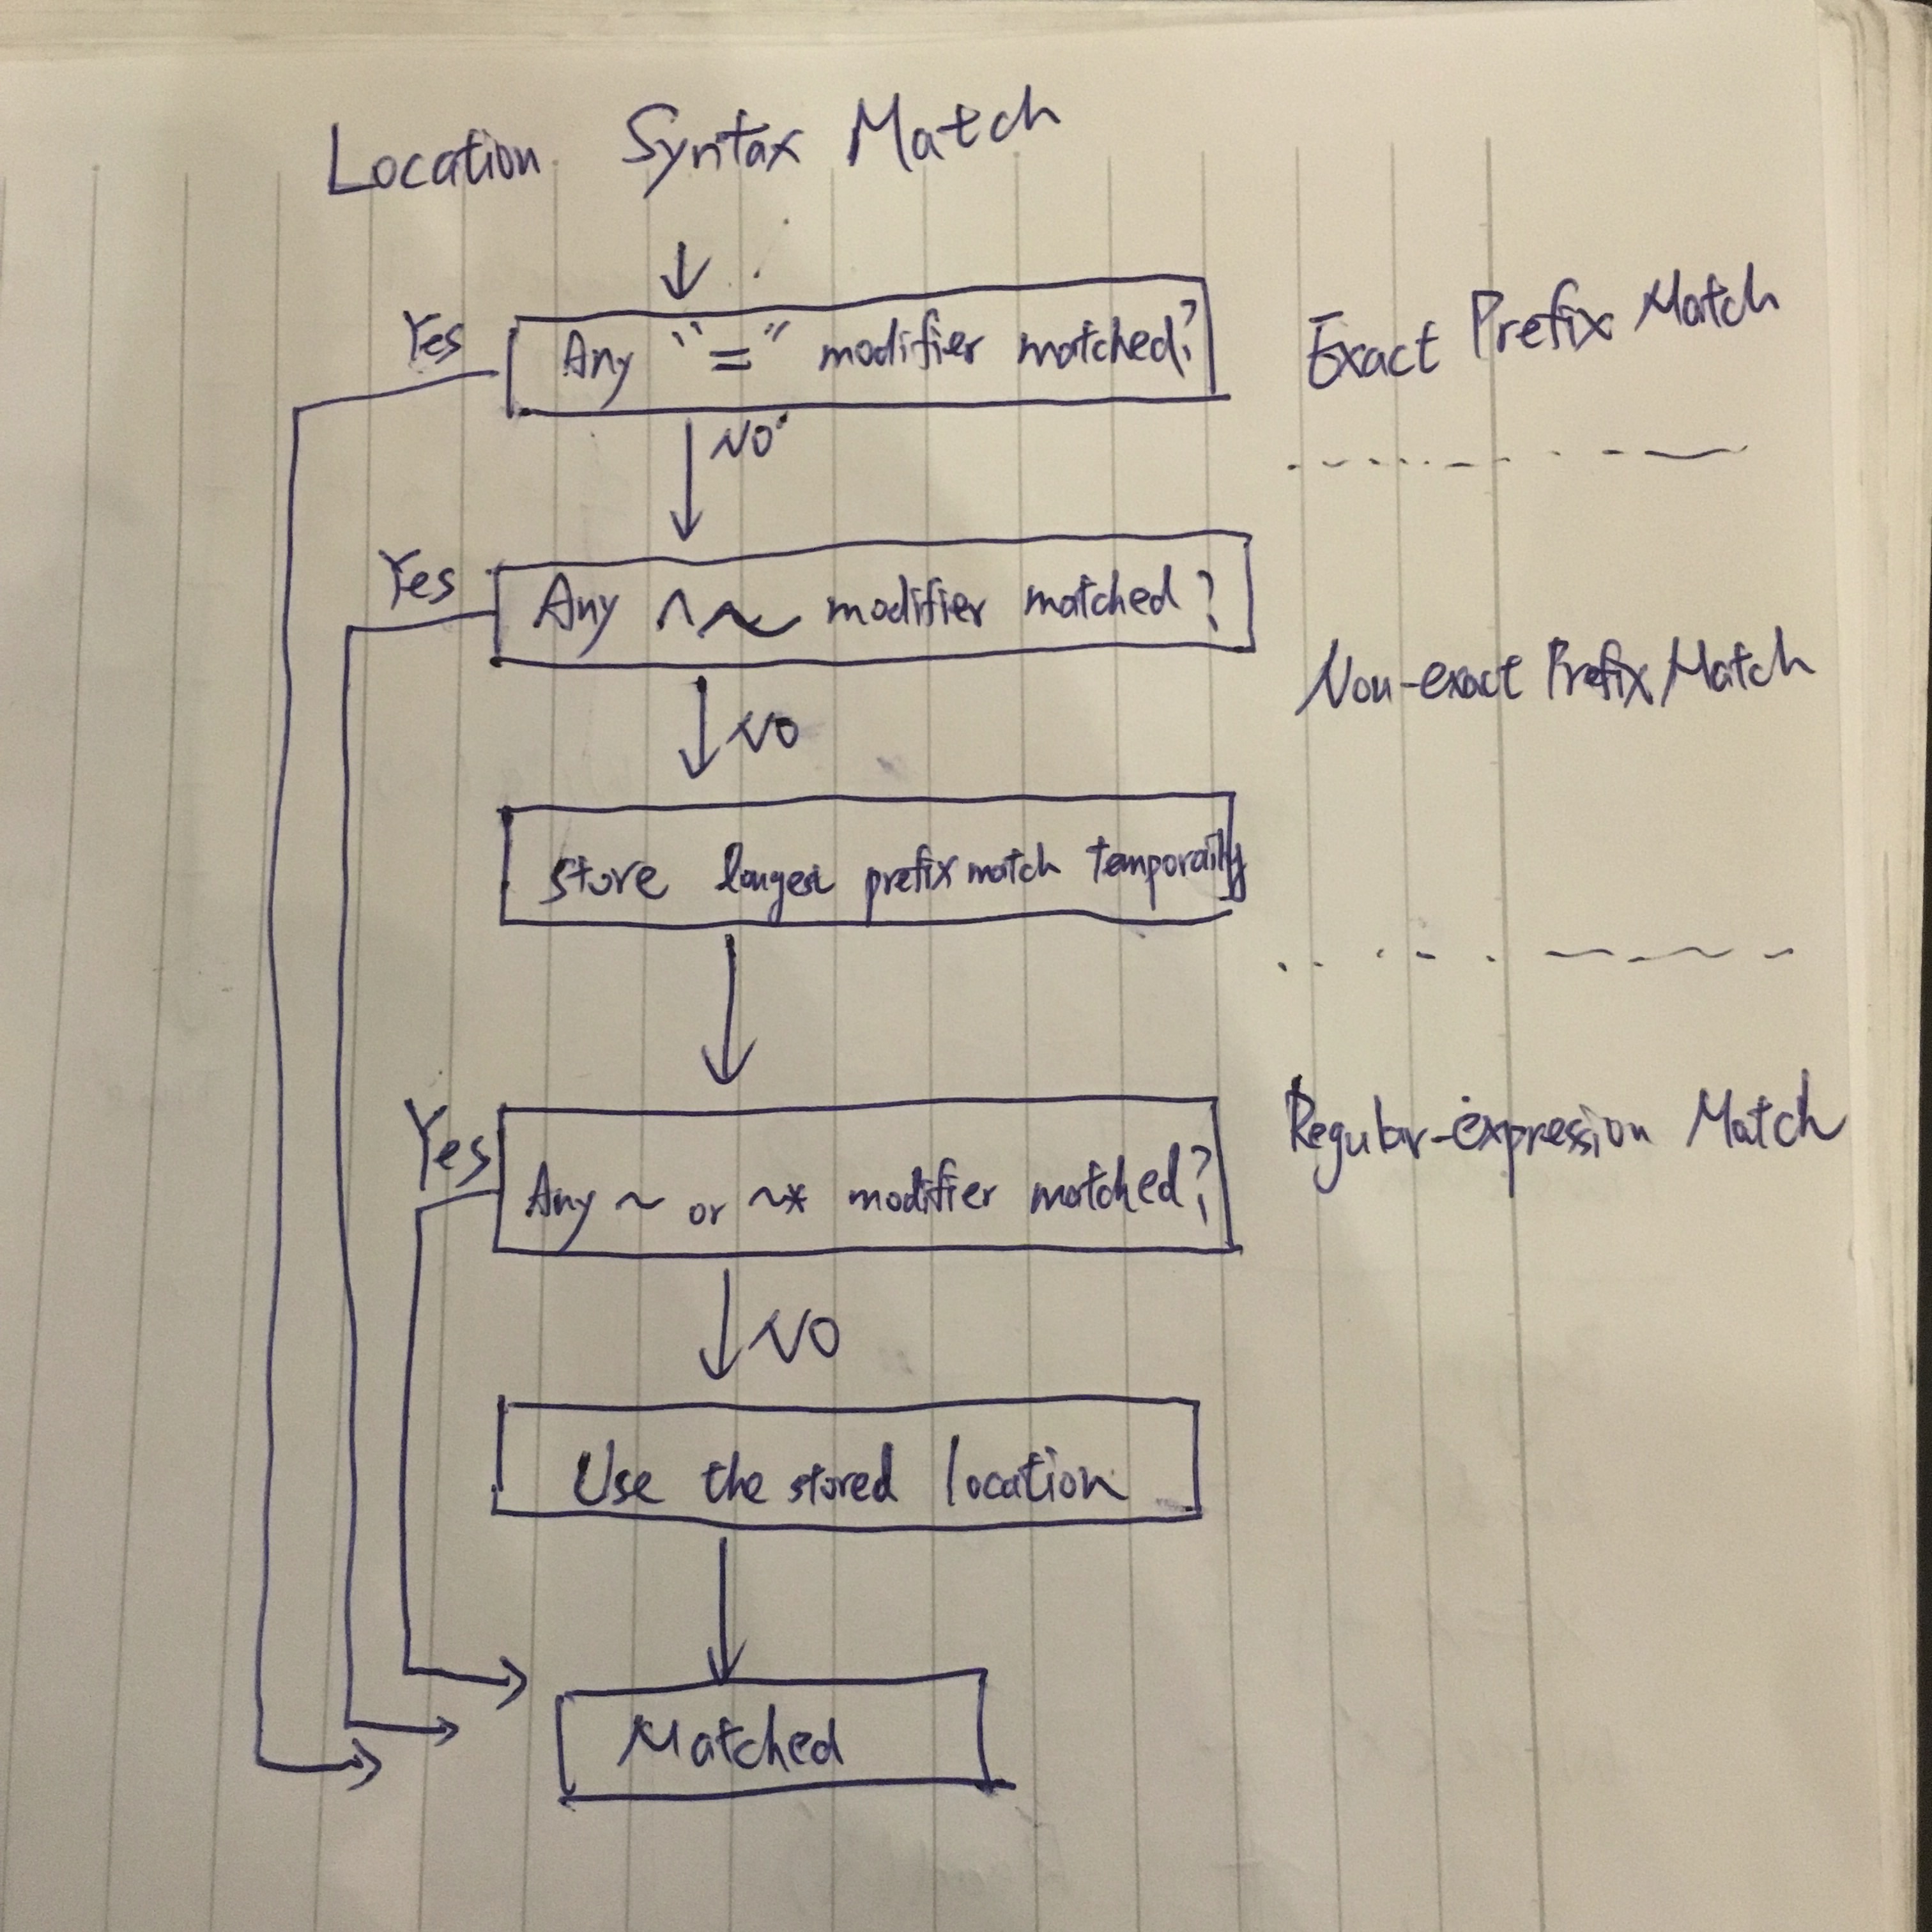 Location Syntax Match
Yes
Any "=" modifier matched?
Exact Prefix Match
NO
Yes
Any ^~ modifier matched?
Non-exact Prefix Match
NO
store longest prefix match temporarily
Yes
Any ~ or ~* modifier matched?
Regular-expression Match
NO
Use the stored location
Matched